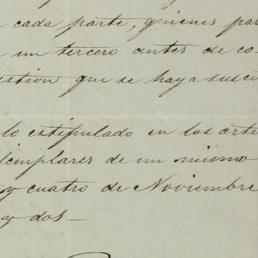 cada parte, quienes
un tercero antes de co-
estion que se haya susci
lo estipulado en los arti
ejemplares de un mismo
y cuatro de Noviembre
y dos—